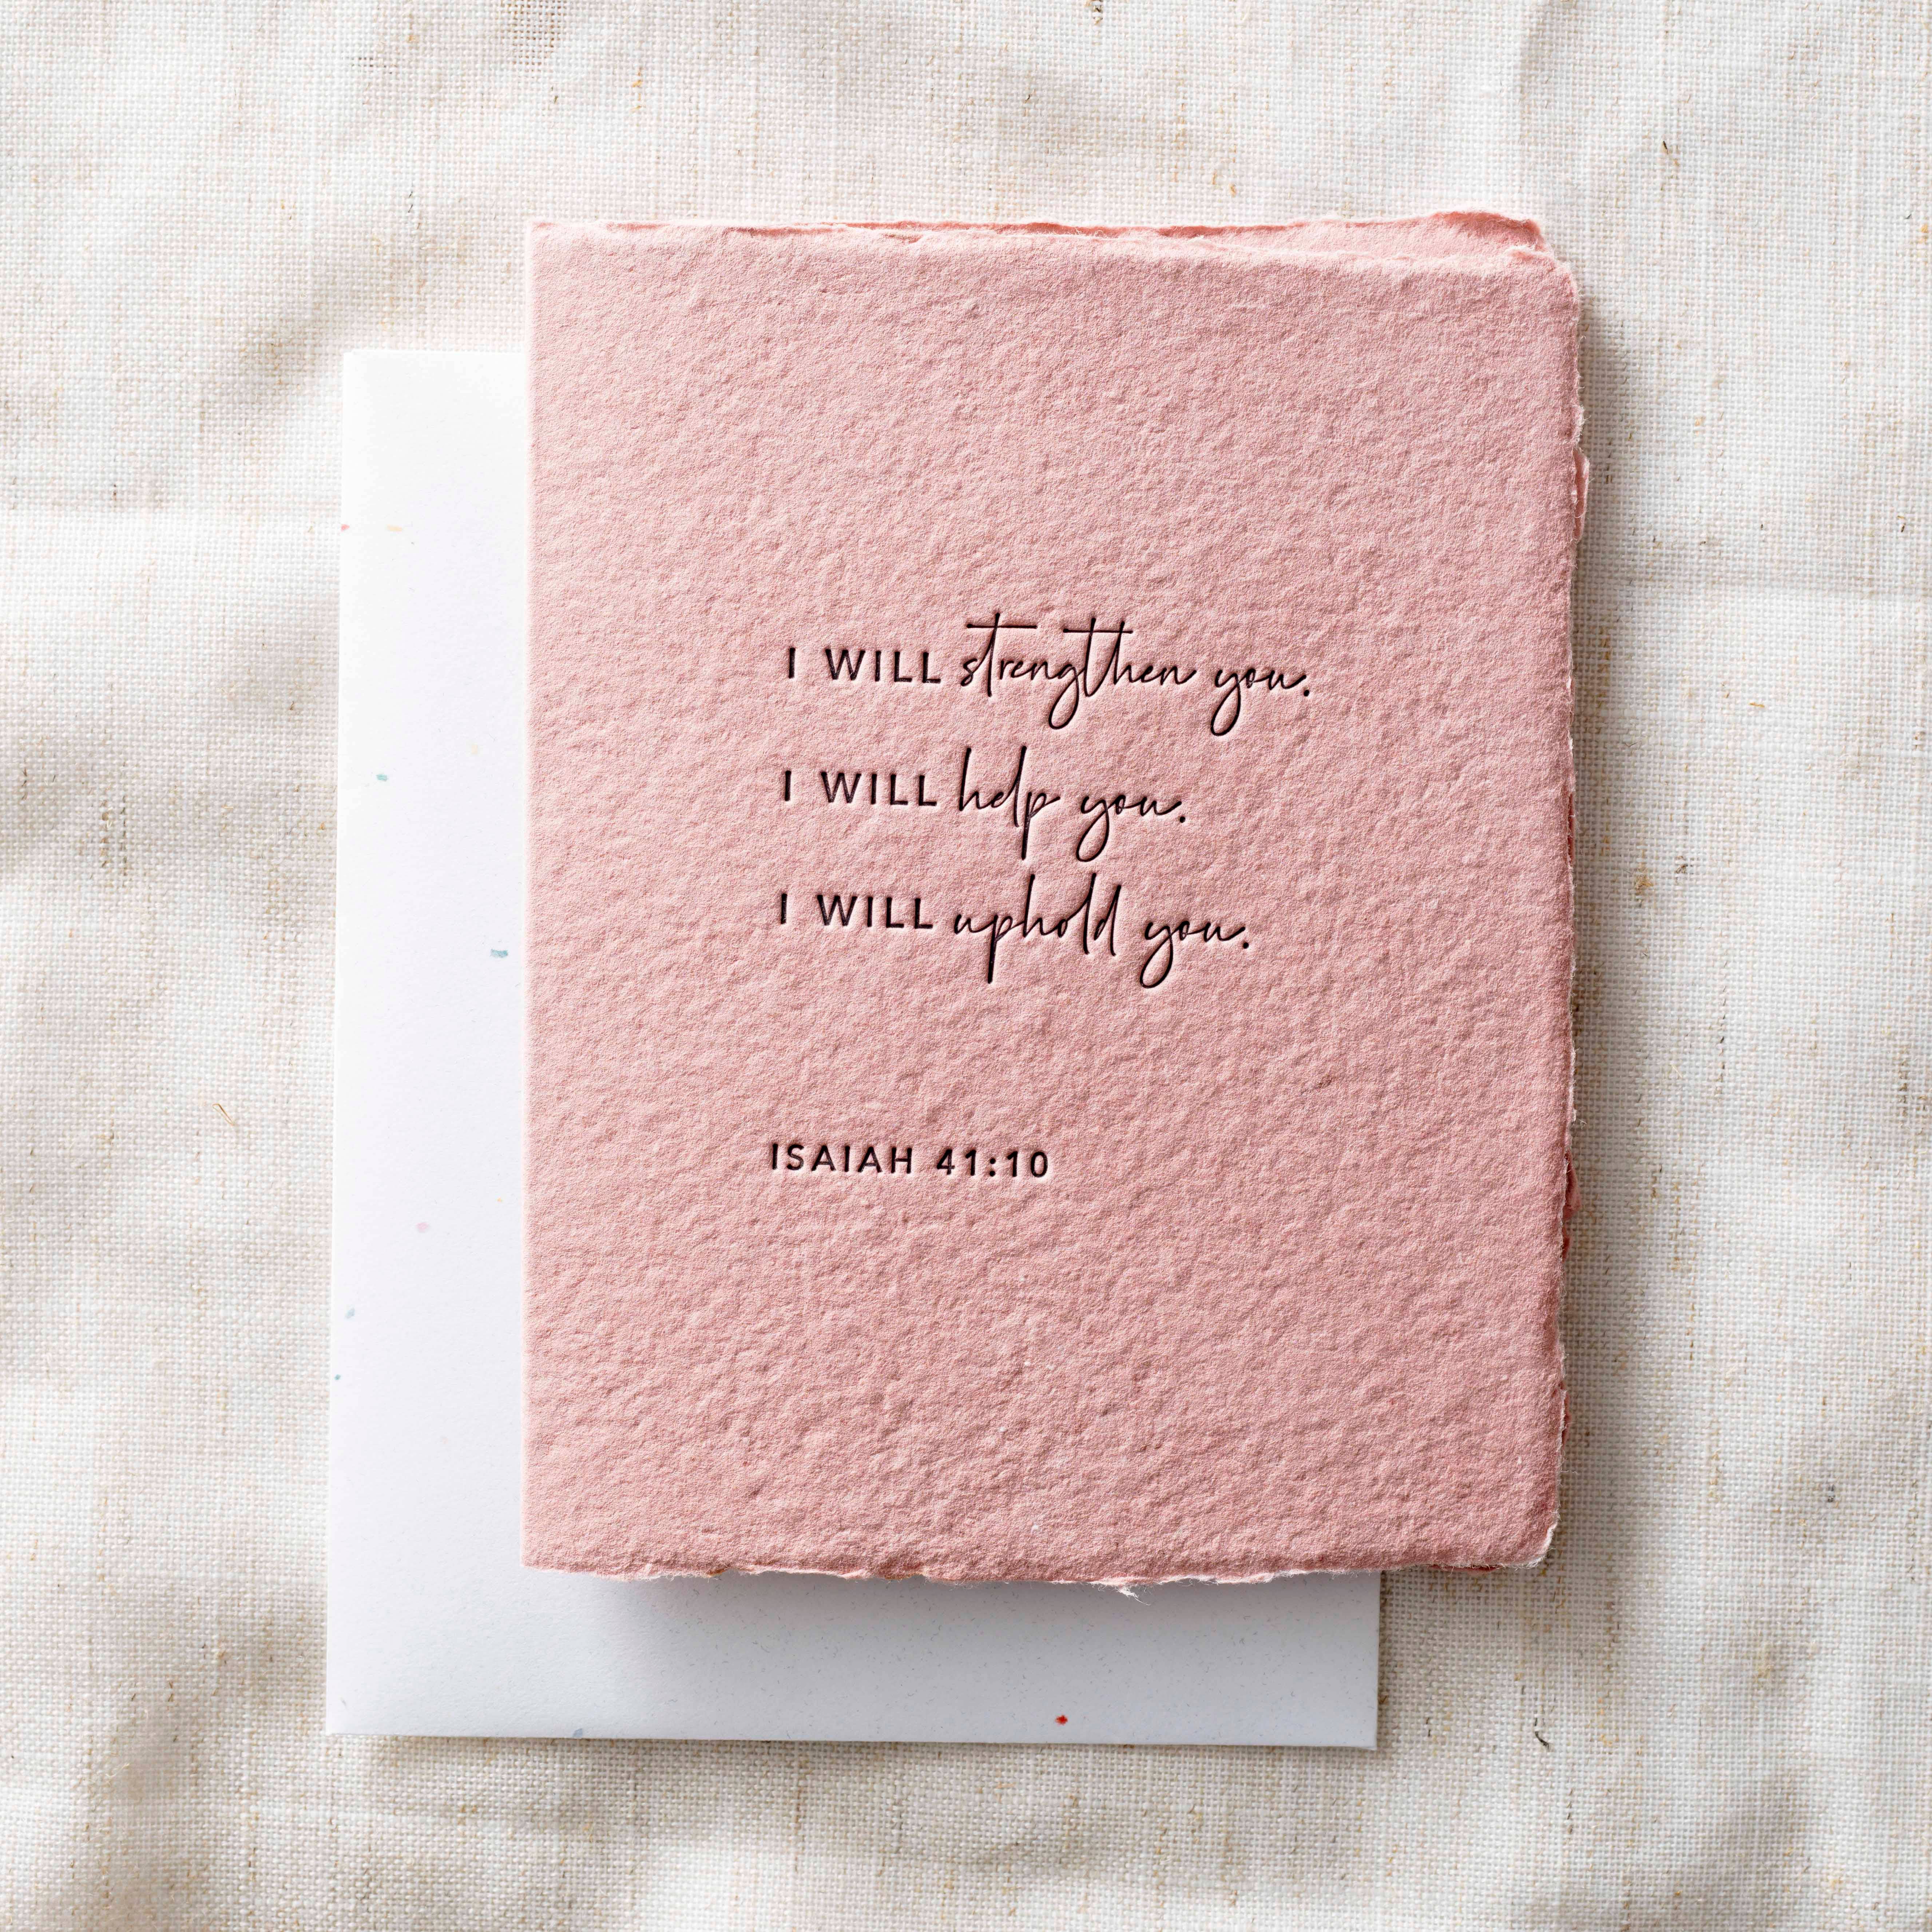 I WILL strengthen you.
I WILL help you.
I WILL uphold you.
ISAIAH 41:10